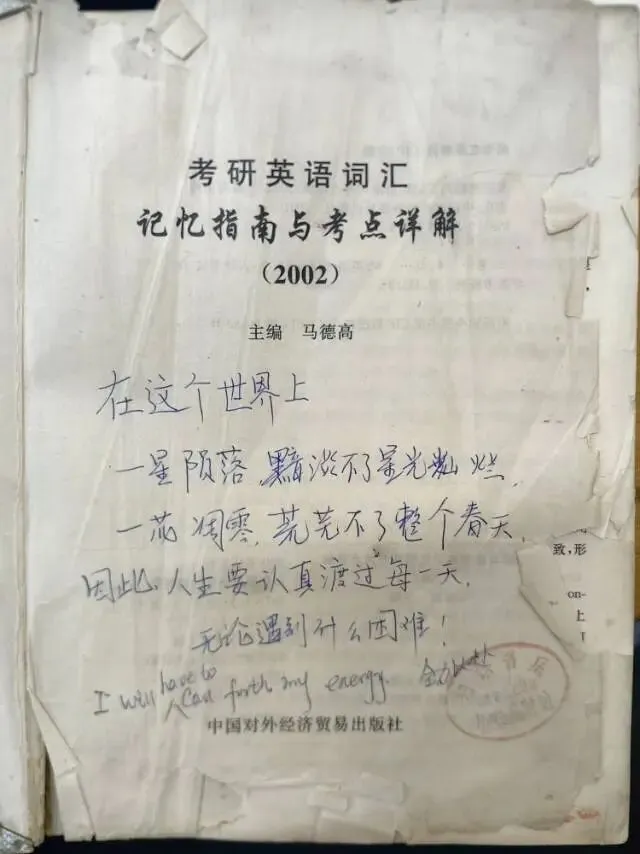 考研英语词汇
记忆指南与考点详解
（2002）
主编 马德高
在这个世界上
一星陨落，黯淡不了星光灿烂，
一花凋零，荒芜不了整个春天，
因此，人生要认真渡过每一天，
无论遇到什么困难！
have to
I will can forth my energy. 全力以赴
中国对外经济贸易出版社
致，形
on-
上